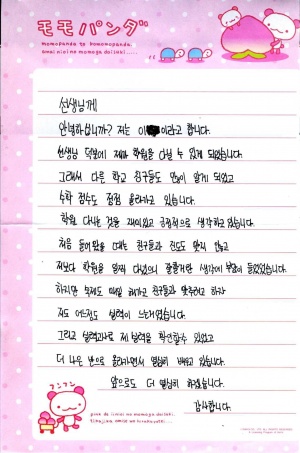 モモパンダ
momopanda to komomopanda.
선생님께
안녕하십니까? 저는 이 이라고 합니다.
선생님 덕분에 제가 학원을 다닐 수 있게 되었습니다.
그래서 다른 학교 친구들도 많이 알게 되었고
수학 점수도 점점 올라가고 있습니다.
학원 다니는 것을 재미있고 긍정적으로 생각하고 있습니다.
처음 들어왔을 때는 친구들과 진도도 맞지 않고
저보다 학원을 일찍 다녔으니 잘할거란 생각에 부담이 들었었습니다.
하지만 숙제도 매일 해가고 친구들과 맞추려고 하자
저도 어느정도 실력이 느는거였습니다.
그리고 실력과로 제 실력을 확인할수 있었고
더 나은 반으로 올라가면서 열심히 배우고 있습니다.
앞으로도 더 열심히 하겠습니다.
감사합니다.
フンフン